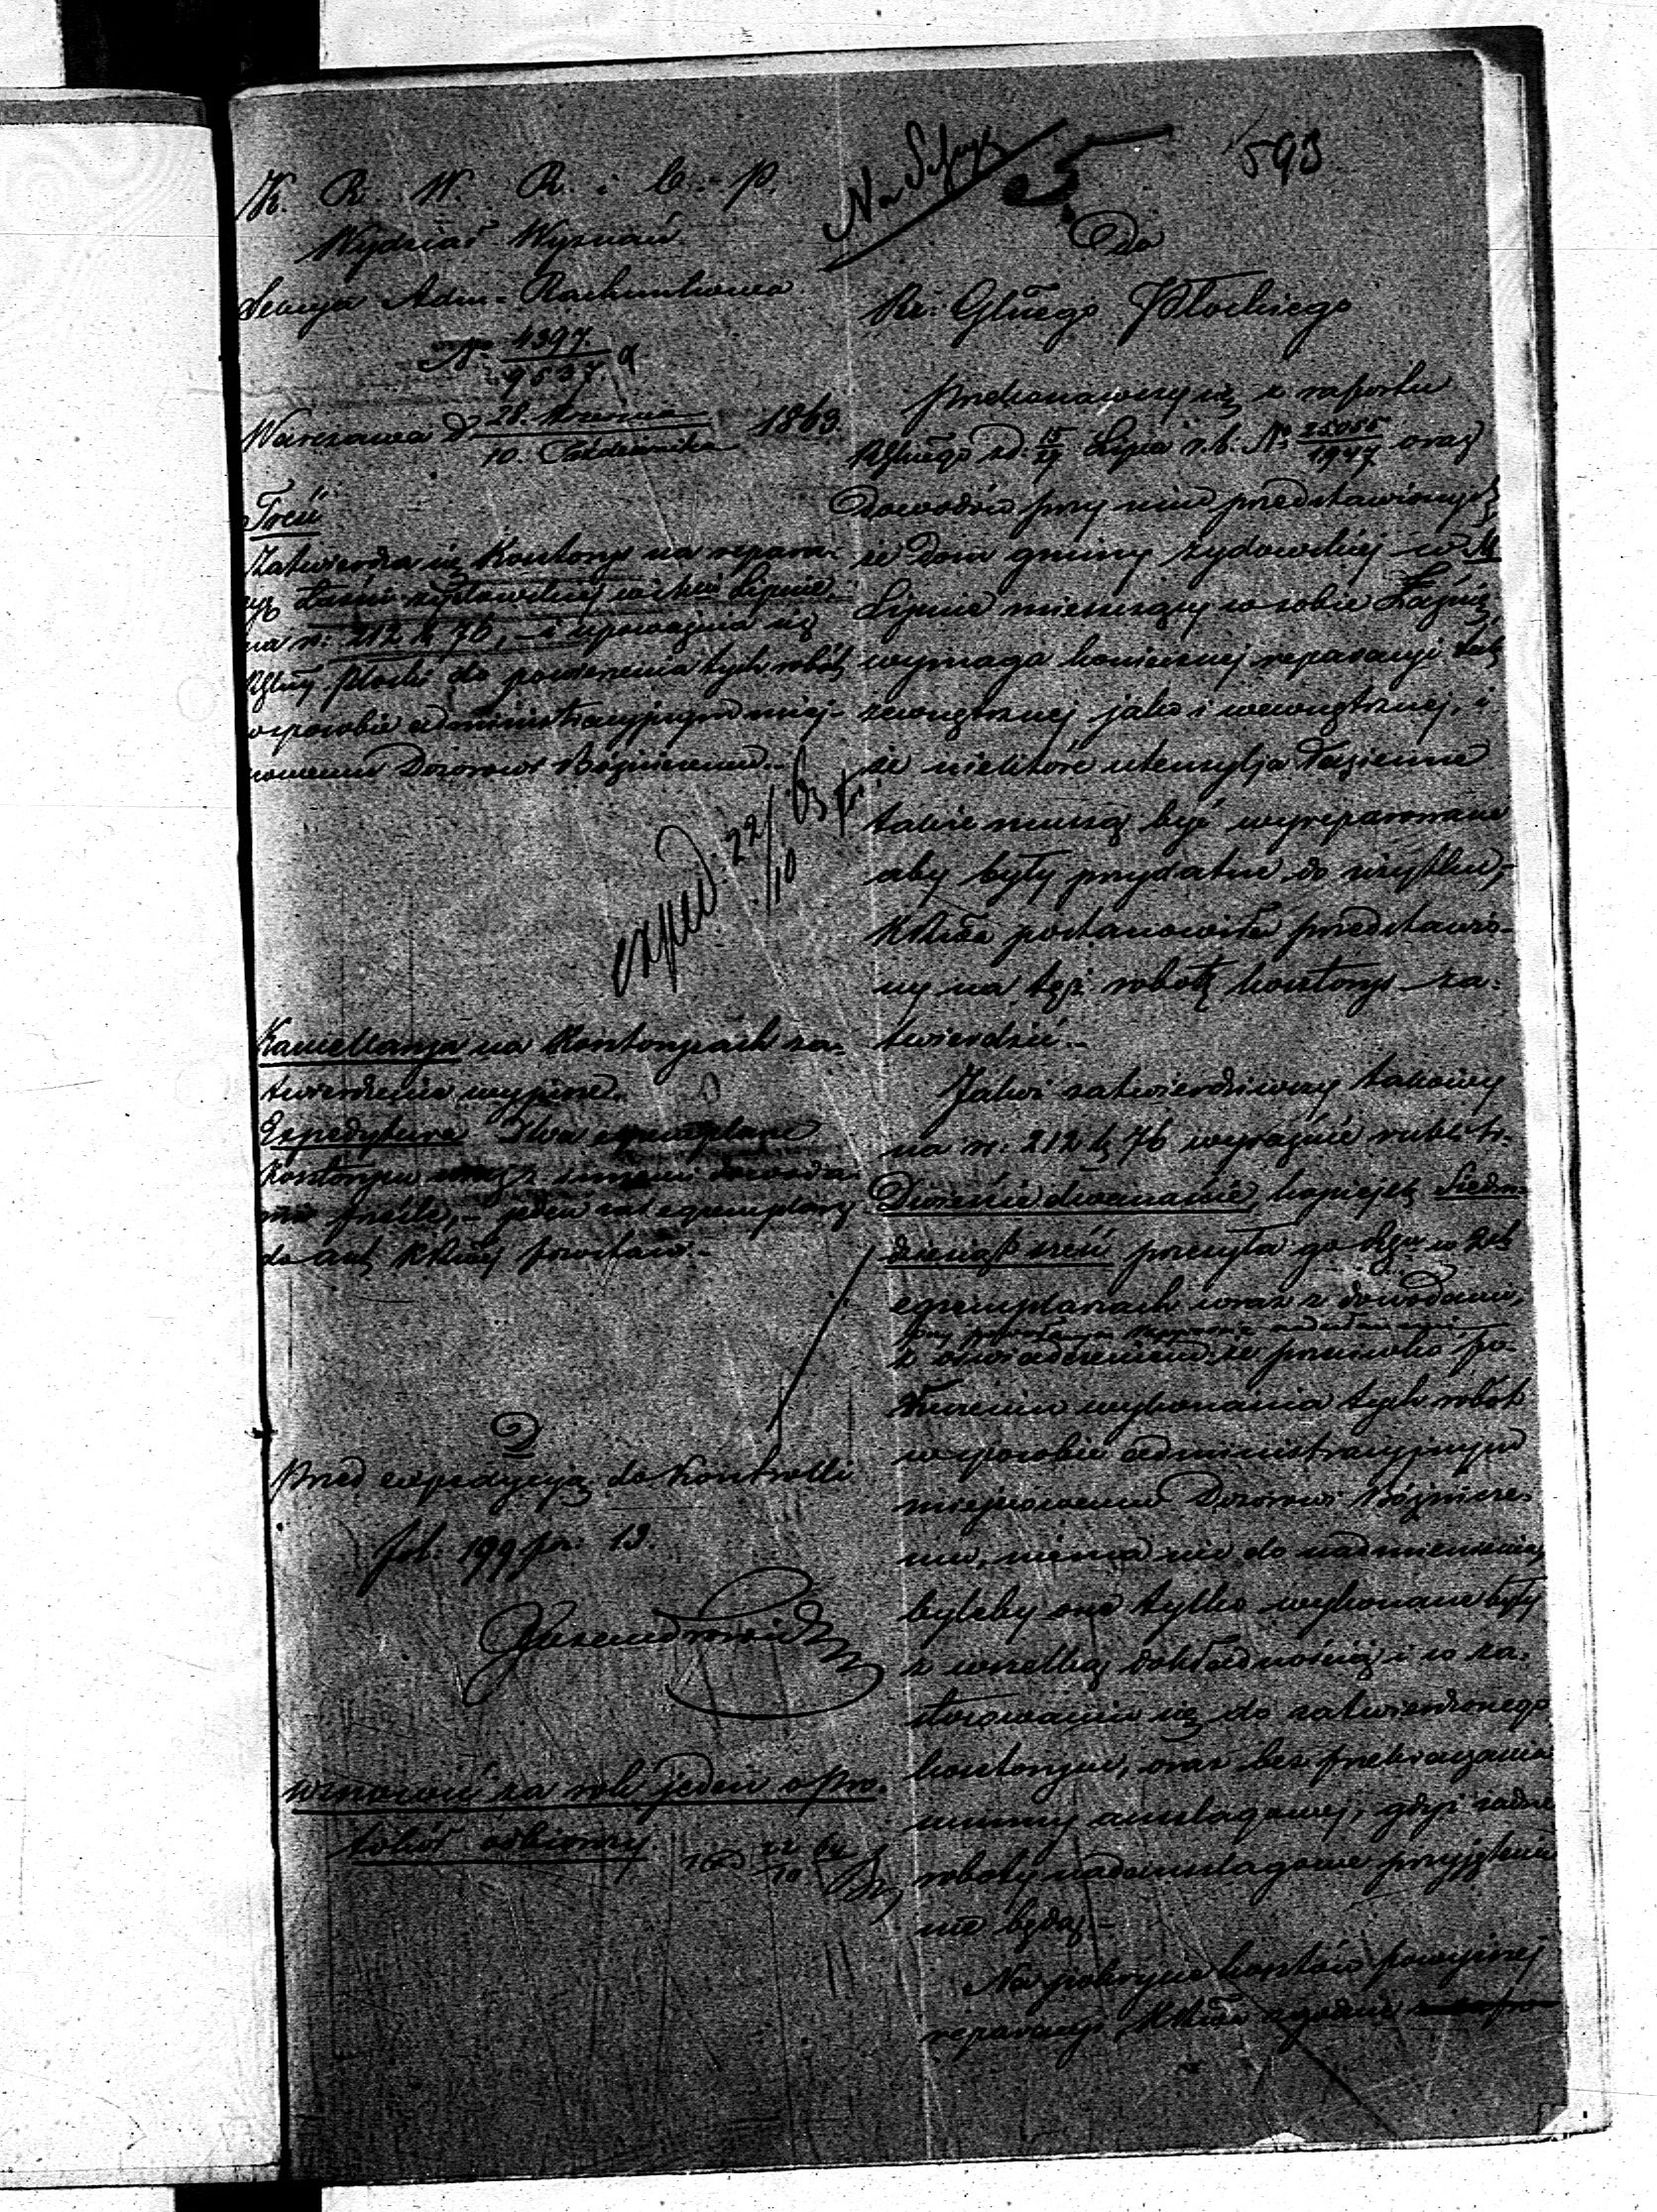 593
K. R. W. R. i O. P.
Wydział Wyznań
Sekcya Adm: Rachunkowa
N° 4397
9537
Warszawa d 28. Września 1863
10. Października
Treść
Zatwierdza się Kosztorys na repara-
cyę Łaźni żydowskiej w mieście Lipnie
na rs: 212 k 76, – i upoważnia się
Rząd Płocki do powierzenia tych robót
w sposobie administracyjnym miej-
scowemu Dozorowi Bóżniczemu.–
exped. 22/10 63
Kancellarya na Kosztorysach za-
twierdzenie wypisze.
Expedytura Dwa exemplarze
Kosztorysu wraz z innemi dowoda-
mi prześle, – jeden zaś exemplarz
do akt KRząd pozostawi.–
Przed expedycyą do Kontrolli
fol: 199 pos: 13.
wznowić za rok jeden o pro-
tokół odbiorczy
Do
Rz: Gub̃ego Płockiego
Przekonawszy się z raportu
RGub̃ego z d. 15/27 Lipca r. b. N° 25055/1947 oraz
dowodów przy nim przedstawionych
że Dom gminy żydowskiej w M.
Lipnie mieszczący w sobie Łaźnię,
wymaga koniecznej reparacyi tak
zewnętrznej jako i wewnętrznej, i
że niektóre utensylja Łazienne
także muszą być wyreparowane
aby były przydatne do użytku,–
KRząd postanowiła przedstawio-
ny na tęż robotę kosztorys za-
twierdzić.–
Jakoż zatwierdziwszy takowy
na rs: 212 k 76 wyraźnie rubli sr.
Dwieście dwanaście, kopiejek Siedm-
dziesiąt sześć przesyła go Rząd w 2ch
egzemplarzach wraz z dowodami,
z oświadczeniem, że przeciwko po-
ruczeniu wykonania tych robót
w sposobie administracyjnym
miejscowemu Dozorowi Bóżnicze-
mu, niema nic do nadmienienia,
byleby one tylko wykonane były
z wszelką dokładnością i w za-
stosowaniu się do zatwierdzonego
kosztorysu, oraz bez przekraczania
summy anszlagowej, gdyż żadne
roboty nadanszlagowe przyjętemi
nie będą –
Na pokrycie kosztów powyższej
reparacyi KRząd zgodnie